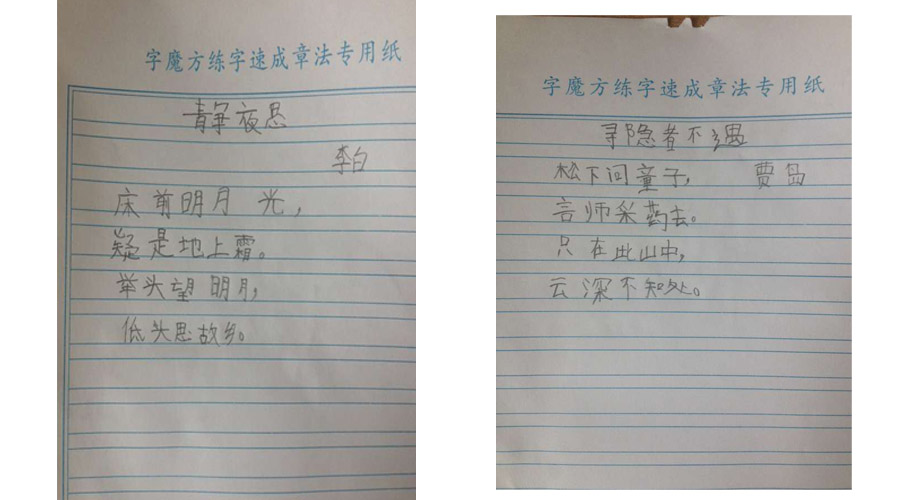 字魔方练字速成章法专用纸
静夜思
李白
床前明月光，
疑是地上霜。
举头望明月，
低头思故乡。
字魔方练字速成章法专用纸
寻隐者不遇
松下问童子， 贾岛
言师采药去。
只在此山中，
云深不知处。